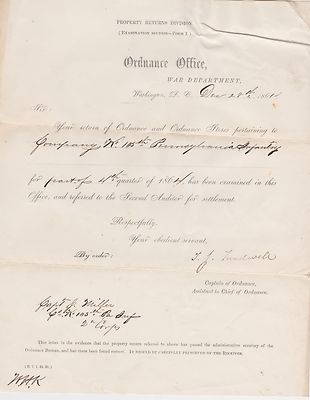 PROPERTY RETURNS DIVISION
(EXAMINATION SECTION—FORM 1.)
Ordnance Office,
WAR DEPARTMENT,
Washington, D. C. Dec 28th, 1864
SIR:
Your return of Ordnance and Ordnance Stores pertaining to
Company K. 105th Pennsylvania Infantry
for part of 4th quarter of 1864, has been examined in this
Office, and referred to the Second Auditor for settlement.
Respectfully,
Your obedient servant,
By order: T. J. Treadwell
Captain of Ordnance,
Assistant to Chief of Ordnance.
Capt J. Miller
Co K. 105th Pa Inf
2d Corps
This letter is the evidence that the property return referred to above has passed the administrative scrutiny of the
Ordnance Bureau, and has there been found correct. IT SHOULD BE CAREFULLY PRESERVED BY THE RECEIVER.